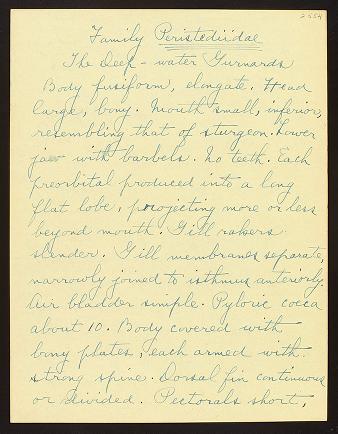 2554
Family Peristediidae
The Deep-water Gurnards
Body fusiform, elongate. Head
large, bony. Mouth small, inferior,
resembling that of sturgeon. Lower
jaw with barbels. No teeth. Each
preorbital produced into a long
flat lobe, projecting more or less
beyond mouth. Gill rakers
slender. Gill membranes separate,
narrowly joined to isthmus anteriorly.
Air bladder simple. Pyloric coeca
about 10. Body covered with
bony plates, each armed with
strong spine. Dorsal fin continuous
or divided. Pectorals short,